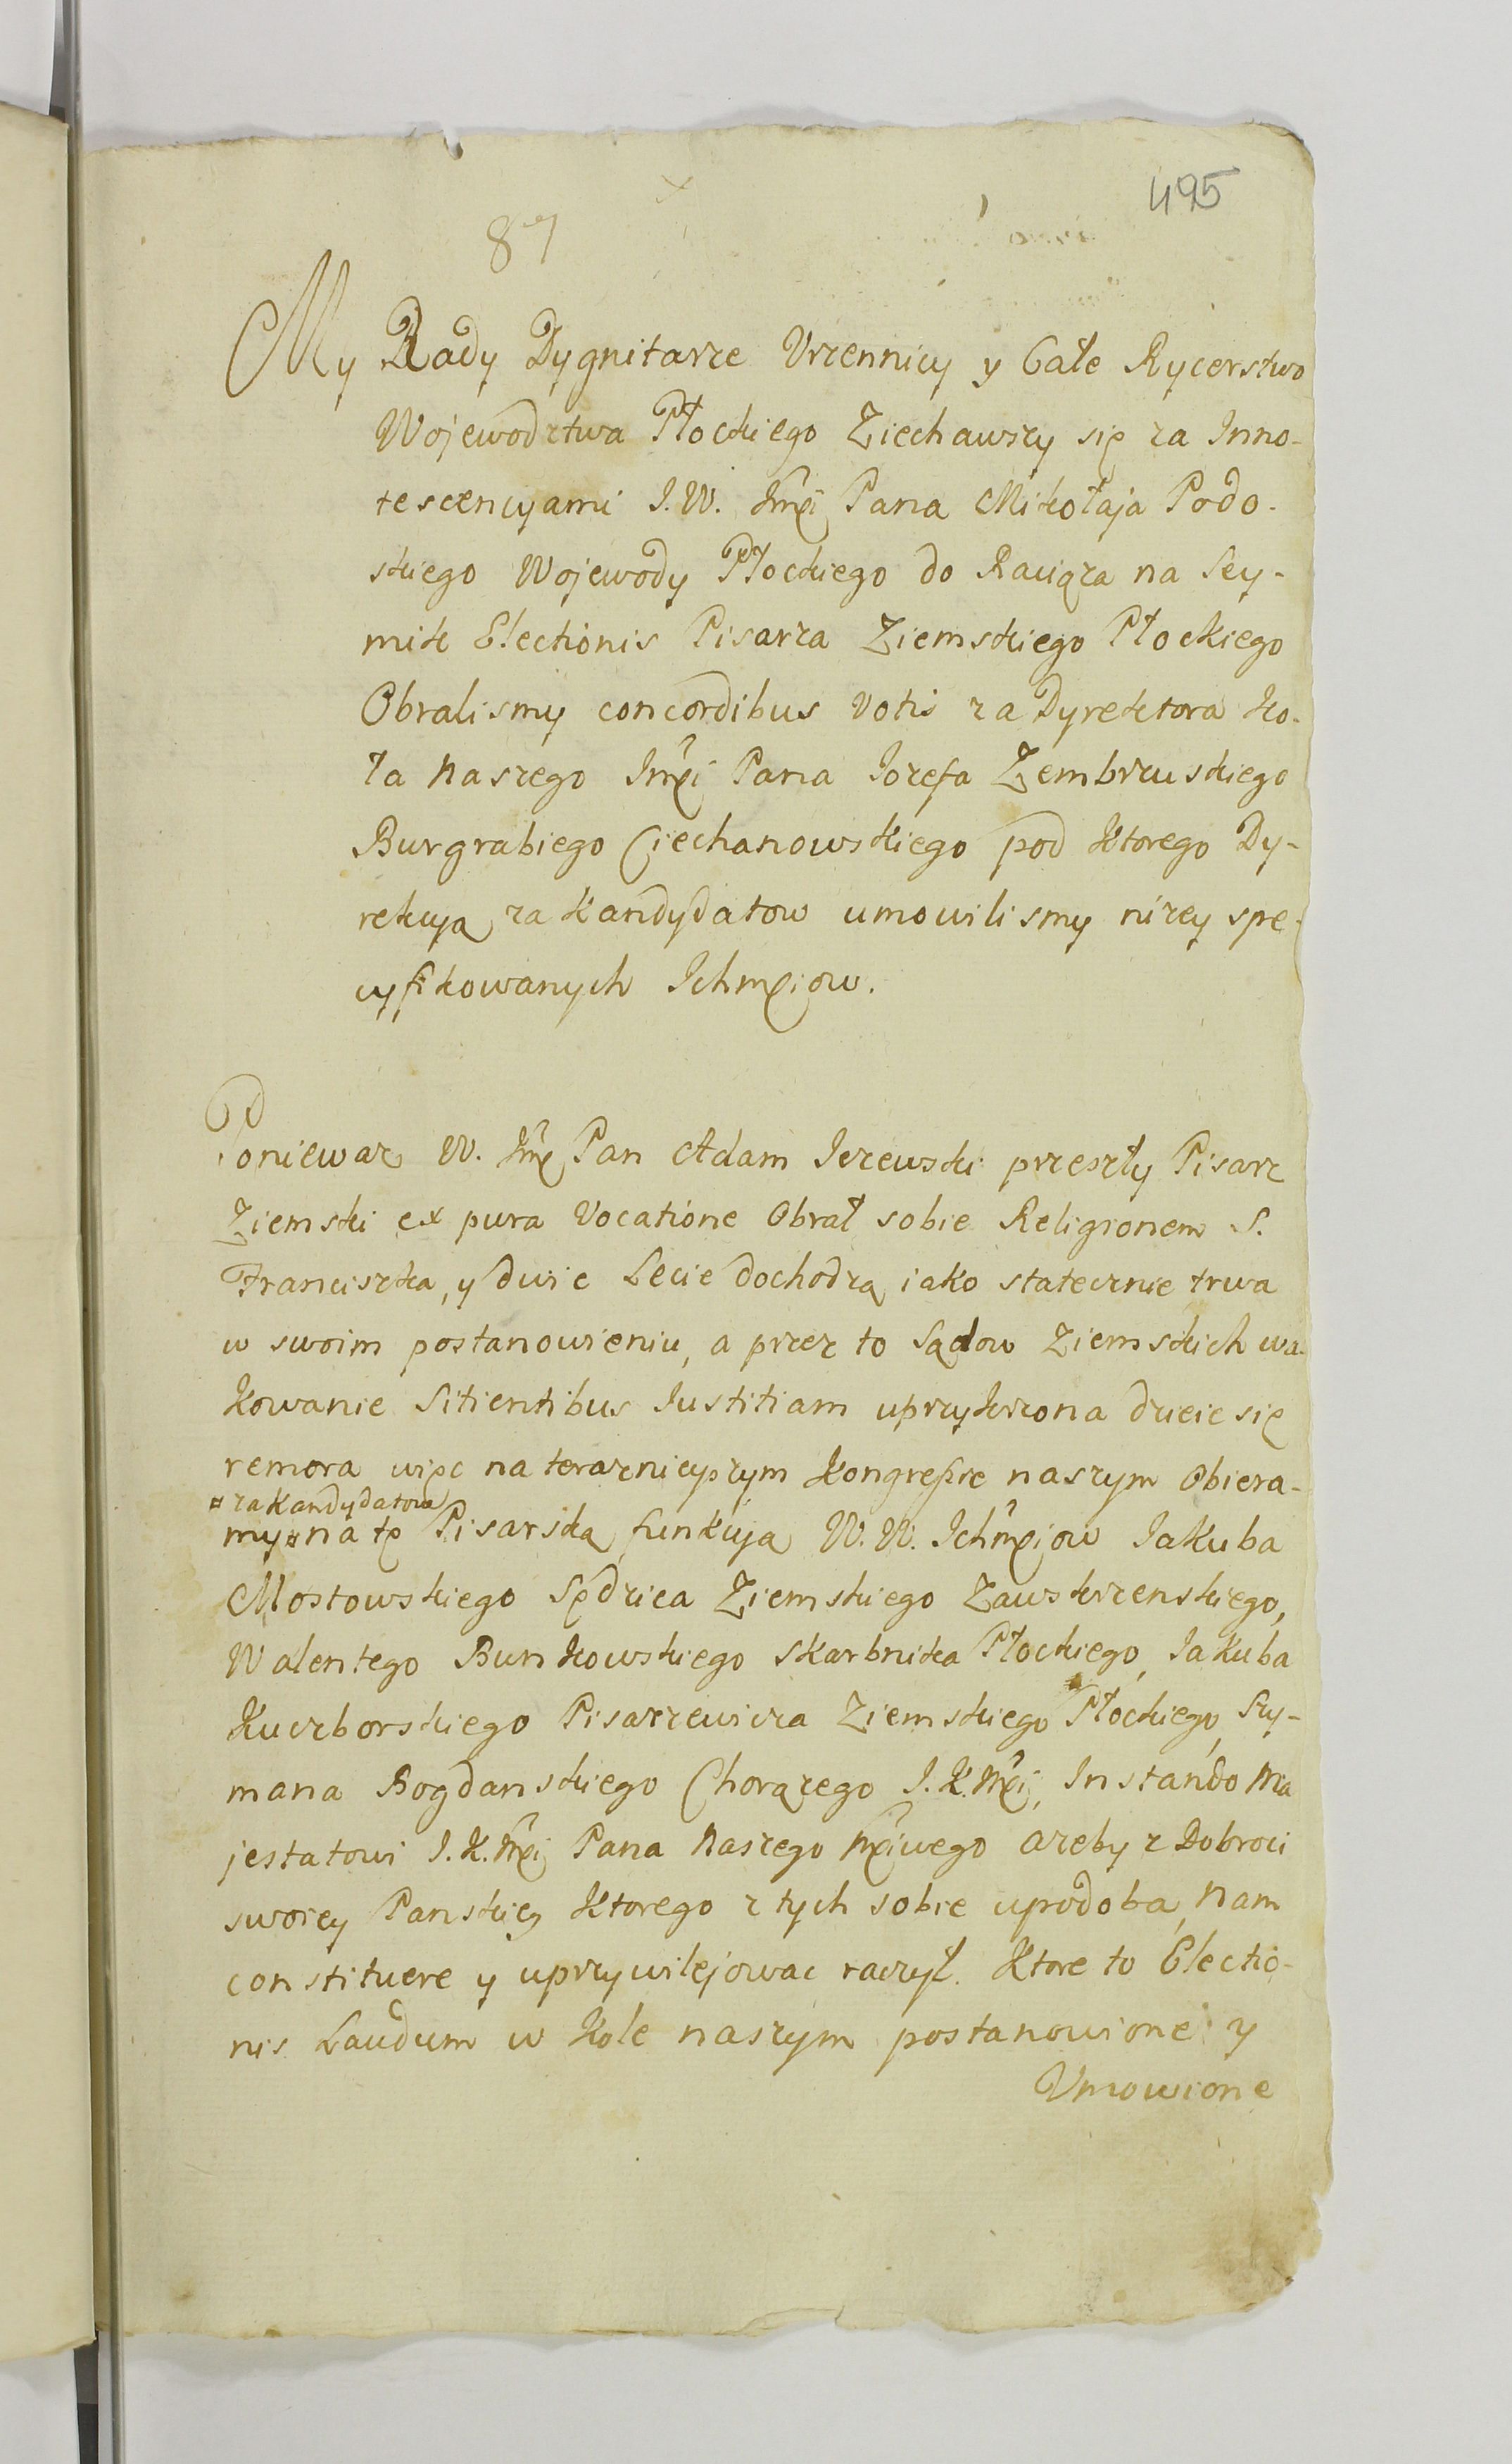 495
87
My Rady Dygnitarze Vrzennicy y Całe Rycerstwo
Wojewodztwa Płockiego Ziechawszy się za Inno-
tescencyami J.W. Jmci Pana Mikołaja Podo-
skiego Wojewody Płockiego do Raciąza na Sey-
mik Electionis Pisarza Ziemskiego Płockiego
Obralismy concordibus votis za Dyrektora ko-
ła naszego Jmci Pana Iozefa Zembrzuskiego
Burgrabiego Ciechanowskiego pod ktorego Dy-
rekcyą za kandydatow umowilismy nizey spe-
cyfikowanych Ichmciow.
Poniewaz W. Jmc Pan Adam Iezewski przeszły Pisarz
Ziemski ex pura Vocatione Obrał sobie Religionem S.
Franciszka, y dwie Lecie dochodzą iako statecznie trwa
w swoim postanowieniu, a przez to Sądow Ziemskich wa-
kowanie Sitientibus Iustitiam uprzykrzona dzieie się
remora więc na teraznieyszym kongressie naszym Obiera-
¤ za Kandydatow
my ¤ na tę Pisarską funkcyą W.W. Ichmciow Jakuba
Mostowskiego Sędzica Ziemskiego Zawskrzenskiego,
Walentego Bunkowskiego Skarbnika Płockiego, Jakuba
Kuczborskiego Pisarzewicza Ziemskiego Płockiego, Szy-
mana Bogdanskiego Chorązego J.K.Mci, Instando Ma
jestatowi J.K.Mci Pana Naszego Mciwego azeby z Dobroci
swoiey Panskiey ktorego z tych sobie upodoba, nam
constituere y uprzywilejowac raczył. Ktore to Electio-
nis Laudum w kole naszym postanowione y
Vmowione